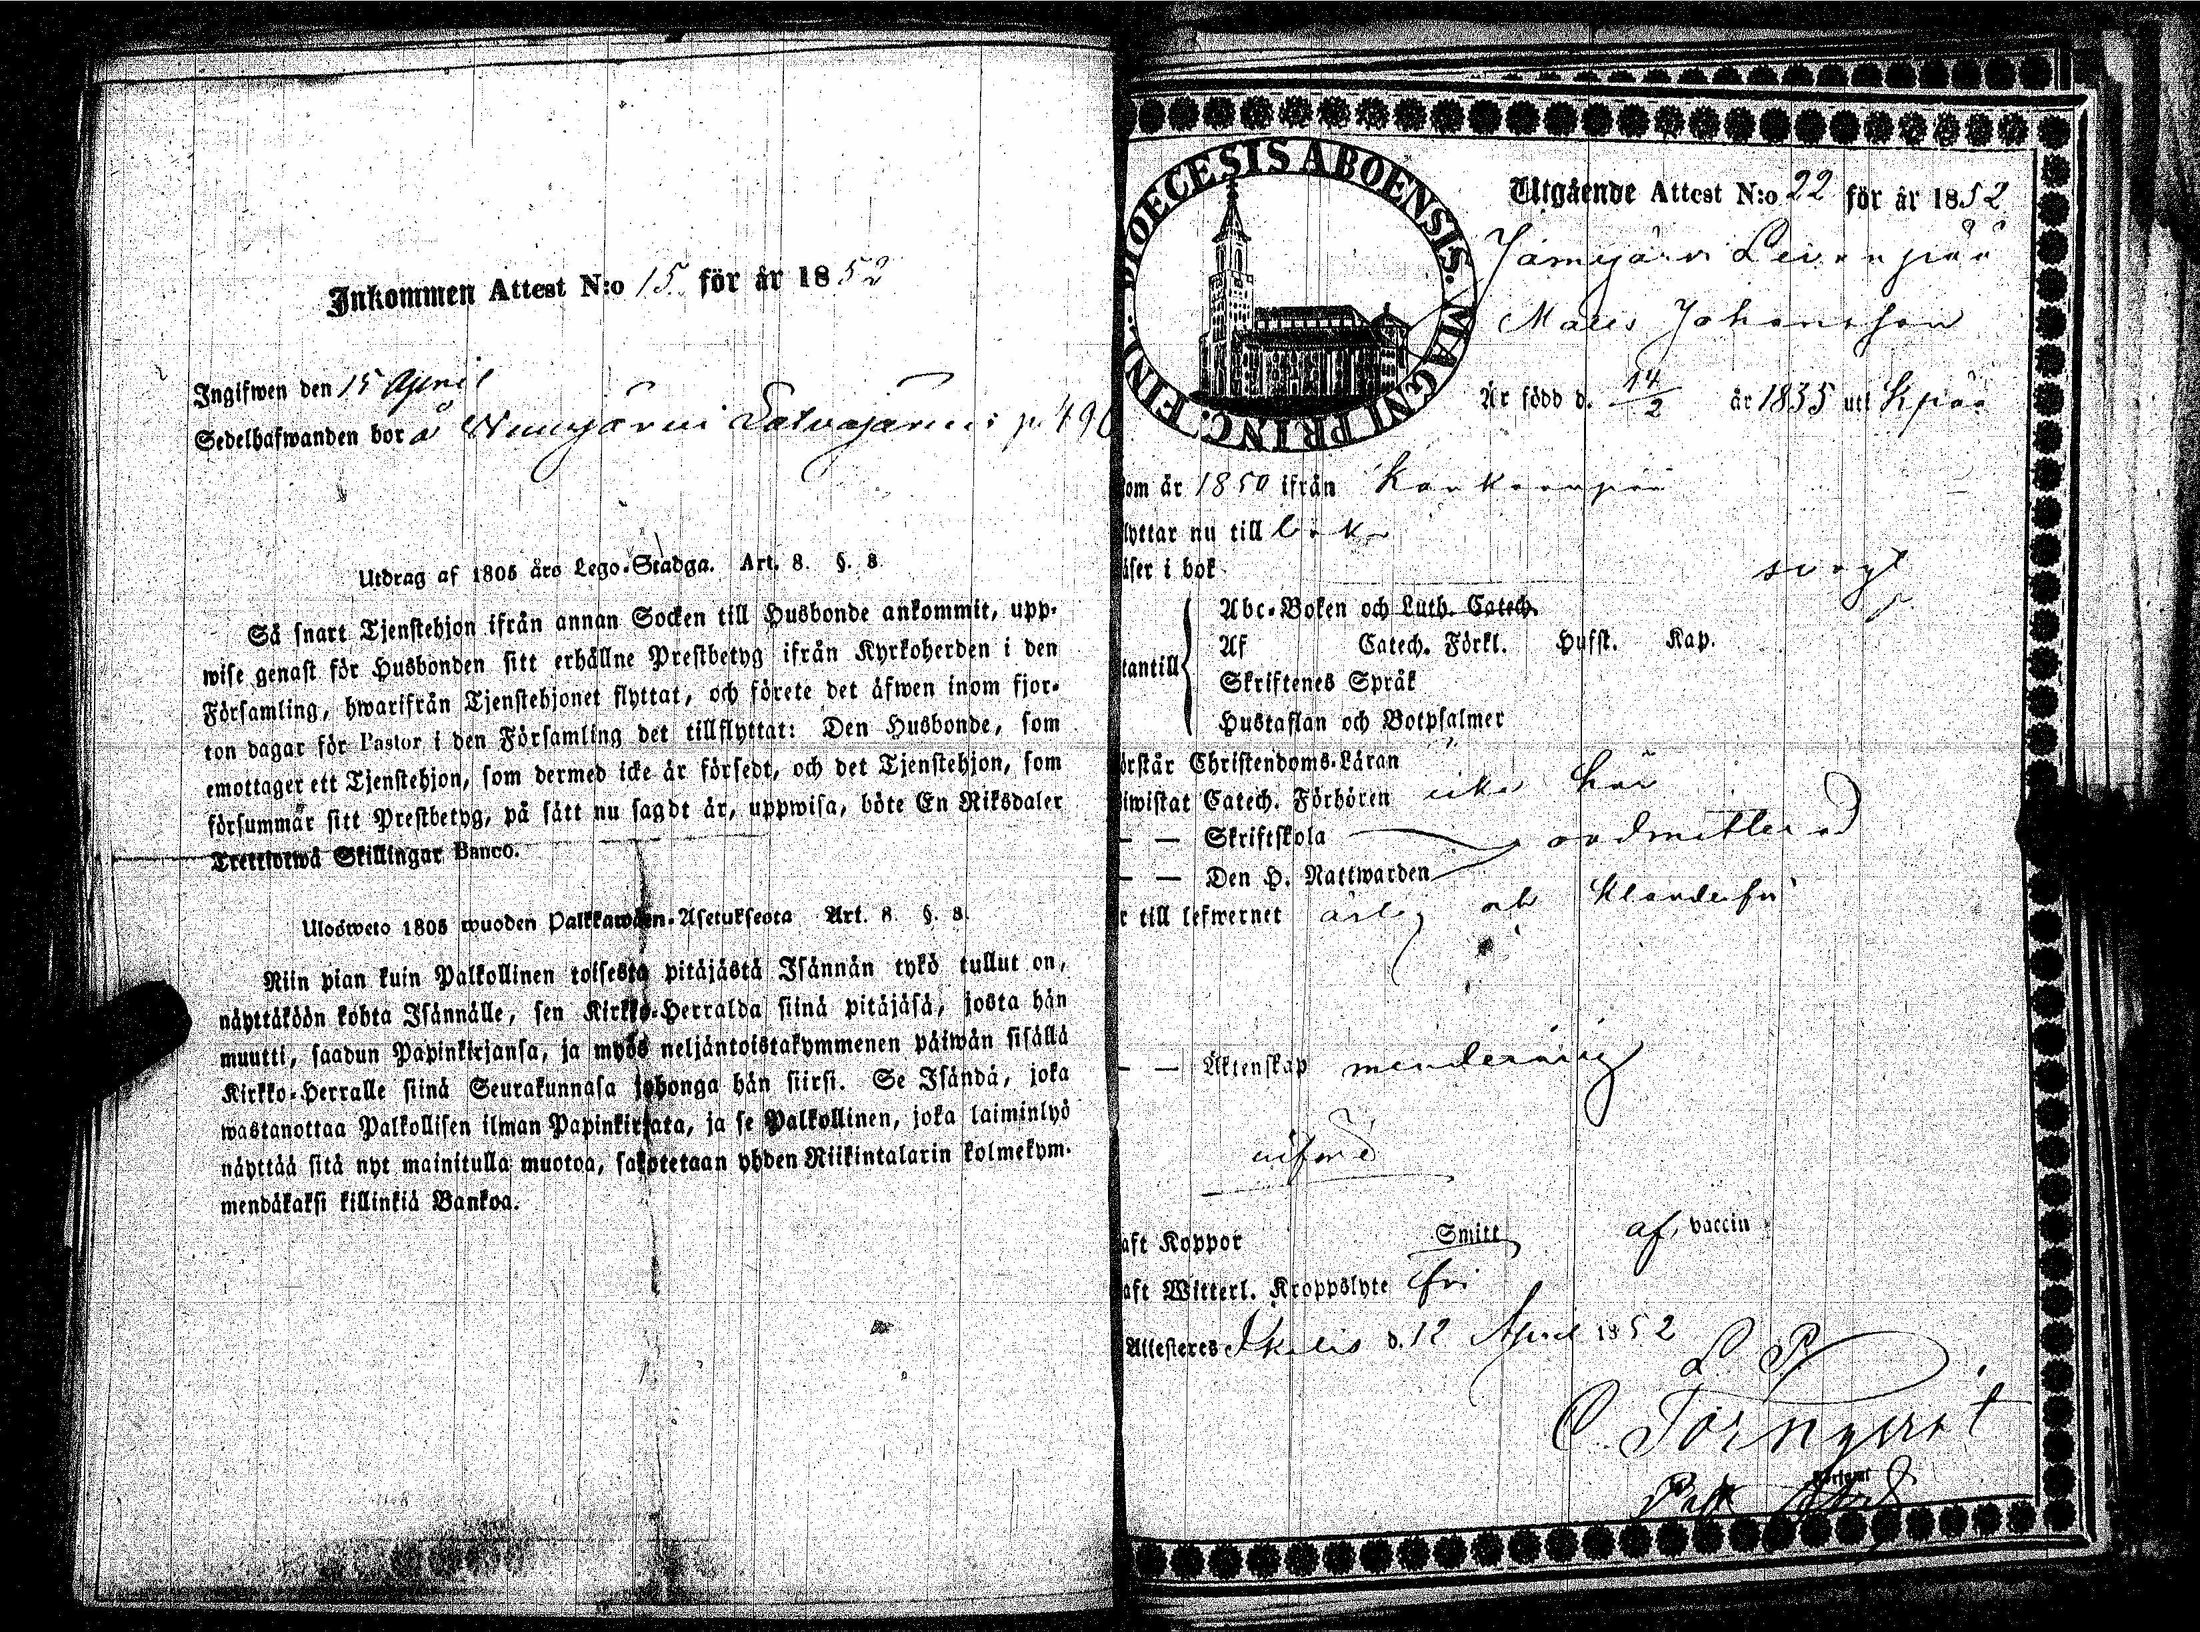 Inkommen Attest N:o 15 för år 1852
Ingifwen den 15 April
Sedelhafwanden bor å
Utdrag af 1805 års Lego-Stadga. Art. 8. §. 8
Så snart Tjenstehjon ifrån annan Socken till Husbonde ankommit, upp-
wise genast för Husbonden sitt erhållne Prestbetyg ifrån Kyrkoherden i den
Församling, hwarifrån Tjenstehjonet flyttat, och förete det äfwen inom fjor-
ton dagar för Pastor i den Församling det tillflyttat: Den Husbonde, som
emottager ett Tjenstehjon, som dermed icke är försedt, och det Tjenstehjon, som
försummar sitt Prestbetyg, på sätt nu sagdt är, uppwisa, böte En Riksdaler
Trettiotwå Skillingar Banco.
Ulosweto 1805 wuoden Palkkawäen-Asetuksesta Art. 8. §. 8.
Niin pian kuin Palkollinen toisesta pitäjästä Isännän tykö tullut on,
näyttäköön kohta Isännälle, sen Kirkko-Herralda siinä pitäjäsä, josta hän
muutti, saadun Papinkirjansa, ja myös neljäntoistakymmenen päiwän sisällä
Kirkko-Herralle siinä Seurakunnasa johonga hän siirsi. Se Isändä, joka
wastanottaa Palkollisen ilman Papinkirjata, ja se Palkollinen, joka laiminlyö
näyttää sitä nyt mainitulla muotoa, sakotetaan yhden Riikintalarin kolmekym-
mendäkaksi killinkiä Bankoa.
DIOECESIS ABOENSIS. MAGNI PRINC. FINL.
Utgående Attest N:o 22 för år 1852
Jämijärvi
Johansson
Är född d. 14/2 år 1835 uti
om år 1850 ifrån Kankaanpää
lyttar nu till
äser i bok svagt
Abc-Boken och Luth. Catech.
Af Catech. Förkl. Husst. Kap.
tantill
Skriftenes Språk
Hustaflan och Botpsalmer
örstår Christendoms-Läran
iwistat Catech. Förhören här
— — Skriftskola admitterad
— — Den H. Nattwarden
r till lefwernet ärlig och klanderfri
— — Äktenskap minderårig
aft Koppor Smitt af vaccin
aft Witterl. Kroppslyte fri
Attesteres Ikalis d. 12 April 1852
C. Törnqvist